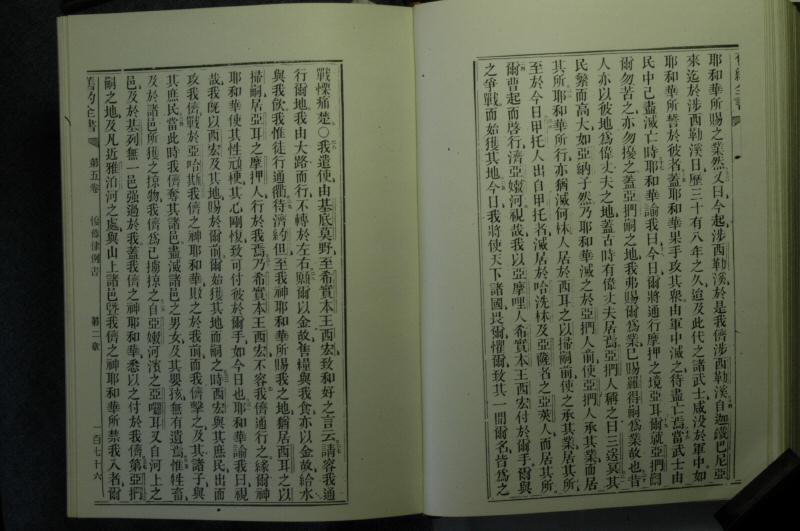 舊約全書
耶和華所賜之業然又曰今起涉西勒溪於是我儕涉西勒溪自迦鐵巴尼亞
來迄於涉西勒溪日歷三十有八年之久迨及此代之諸武士咸没於軍中如
耶和華所誓於彼者蓋耶和華果手攻其衆由軍中滅之待盡亡焉當武士由
民中已盡滅亡時耶和華諭我曰今日爾將通行摩押之境亞耳爾就亞捫嗣
爾勿苦之亦勿擾之蓋亞捫嗣之地我弗賜爾爲業已賜羅得嗣爲業故也昔
人亦以彼地爲偉丈夫之地蓋古時有偉丈夫居焉亞捫人稱之曰三送冥其
民衆而高大如亞納子然乃耶和華滅之於亞捫人前使亞捫人承其業而居
其所耶和華所行亦猶滅何林人居於西耳之以掃嗣前使之承其業居其所
至於今日甲托人出自甲托者滅居於哈洗林及亞薩名之亞葉人而居其所
爾曹起而啓行濟亞嫩河視哉我以亞摩哩人希實本王西宏付於爾手爾與
之爭戰而始獲其地今日我將使天下諸國畏爾懼爾致其一聞爾名皆爲之
戰慄痛楚○我遣使由基底莫野至希實本王西宏致和好之言云請容我通
行爾地我由大路而行不轉於左右願爾以金故售糧與我食亦以金故給水
與我飲我惟徒行通衢待濟約但至我神耶和華所賜我之地猶居西耳之以
掃嗣居亞耳之摩押人行於我焉乃希實本王西宏不容我儕通行之緣爾神
耶和華使其性頑梗其心剛愎致可付彼於爾手如今日也耶和華諭我曰視
哉我既以西宏及其地賜於爾前爾始獲其地而嗣之時西宏與其庶民出而
攻我儕戰於亞哈斯我儕之神耶和華敗之於我前而我儕擊之及其諸子與
其庶民當此時我儕奪其諸邑盡滅諸邑之男女及其嬰孩無有遺焉惟牲畜
及於諸邑所獲之掠物我儕爲己擄掠之自亞嫩河濱之亞囉耳又自河上之
邑及於基列無一邑强過於我蓋我儕之神耶和華悉以之付於我儕第亞捫
嗣之地及凡近雅泊河之處與山上諸邑曁我儕之神耶和華所禁我入者爾
舊約全書 第五卷 復傳律例書 第二章 一百七十六